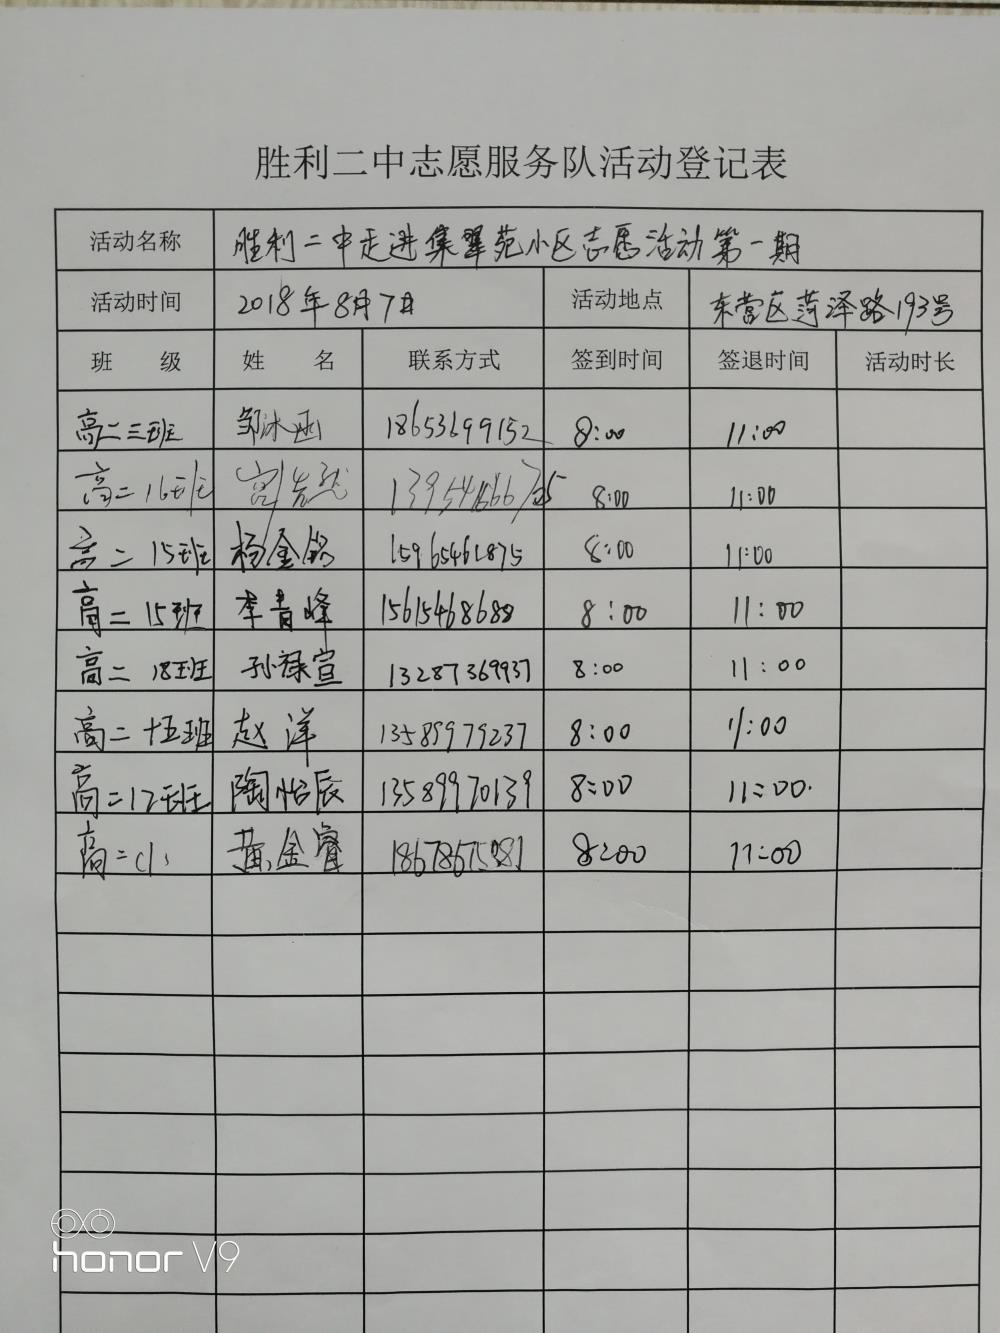 胜利二中志愿服务队活动登记表
活动名称 胜利二中走进集翠苑小区志愿活动第一期
活动时间 2018年8月7日 活动地点 东营区菏泽路193号
班 级 姓 名 联系方式 签到时间 签退时间 活动时长
高二三班 邹冰函 18653699152 8:00 11:00
高二16班 8:00 11:00
高二15班 杨金铭 15965461875 8:00 11:00
高二15班 李青峰 15615468688 8:00 11:00
高二18班 孙禄宣 13287369937 8:00 11:00
高二十五班 赵洋 13589979237 8:00 11:00
高二12班 陶怡辰 13589970139 8:00 11:00
高二 黄金睿 8:00 11:00
honor V9